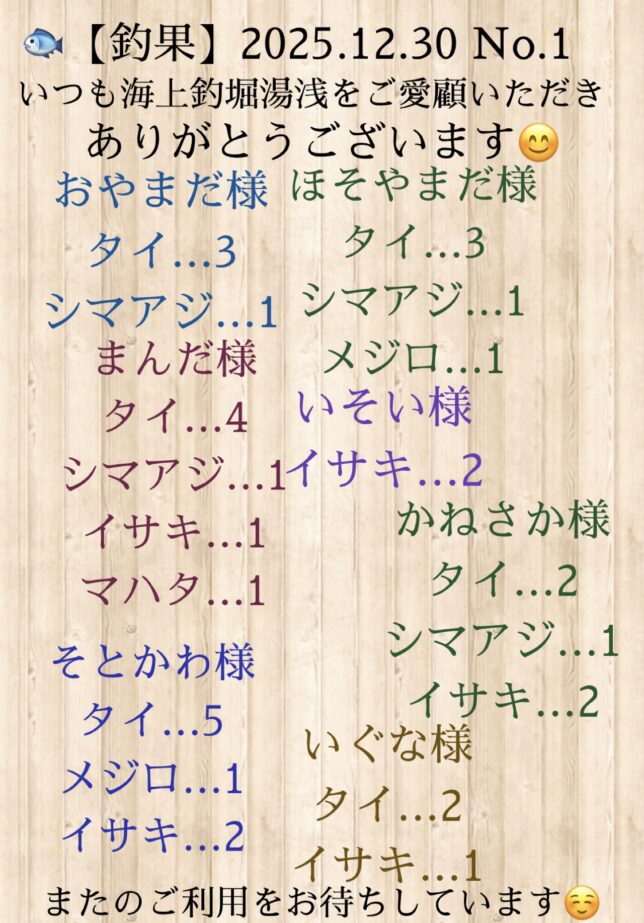 🐟【釣果】2025.12.30 No.1
いつも海上釣堀湯浅をご愛顧いただき
ありがとうございます😊
おやまだ様
タイ...3
シマアジ...1
まんだ様
タイ...4
シマアジ...1
イサキ...1
マハタ...1
そとかわ様
タイ...5
メジロ...1
イサキ...2
ほそやまだ様
タイ...3
シマアジ...1
メジロ...1
いそい様
イサキ...2
かねさか様
タイ...2
シマアジ...1
イサキ...2
いぐな様
タイ...2
イサキ...1
またのご利用をお待ちしています☺️